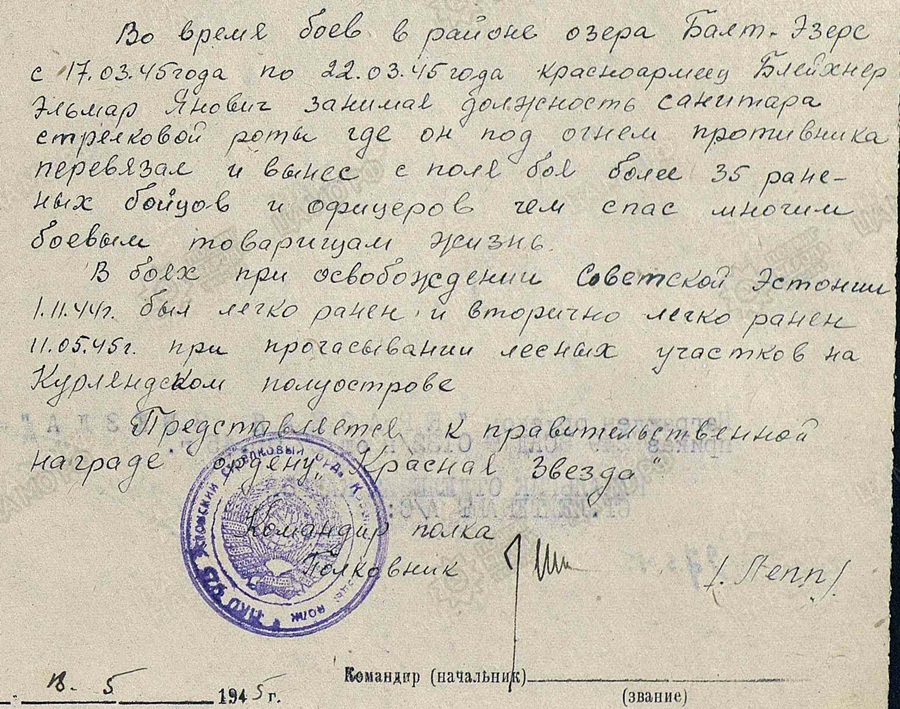 Во время боев в районе озера Балт-Эзерс
с 17.03.45 года по 22.03.45 года красноармеец Блейхнер
Эльмар Янович занимая должность санитара
стрелковой роты где он под огнем противника
перевязал и вынес с поля боя более 35 ране-
ных бойцов и офицеров чем спас многим
боевым товарищам жизнь.
В боях при освобождении Советской Эстонии
1.11.44г. был легко ранен и вторично легко ранен
11.05.45г. при прочасывании лесных участков на
Курляндском полуострове
Представляется к правительственной
награде ордену „Красная Звезда"
Командир полка
Полковник /Лепп/.
Командир (начальник)
18. 5 1945г.
(звание)